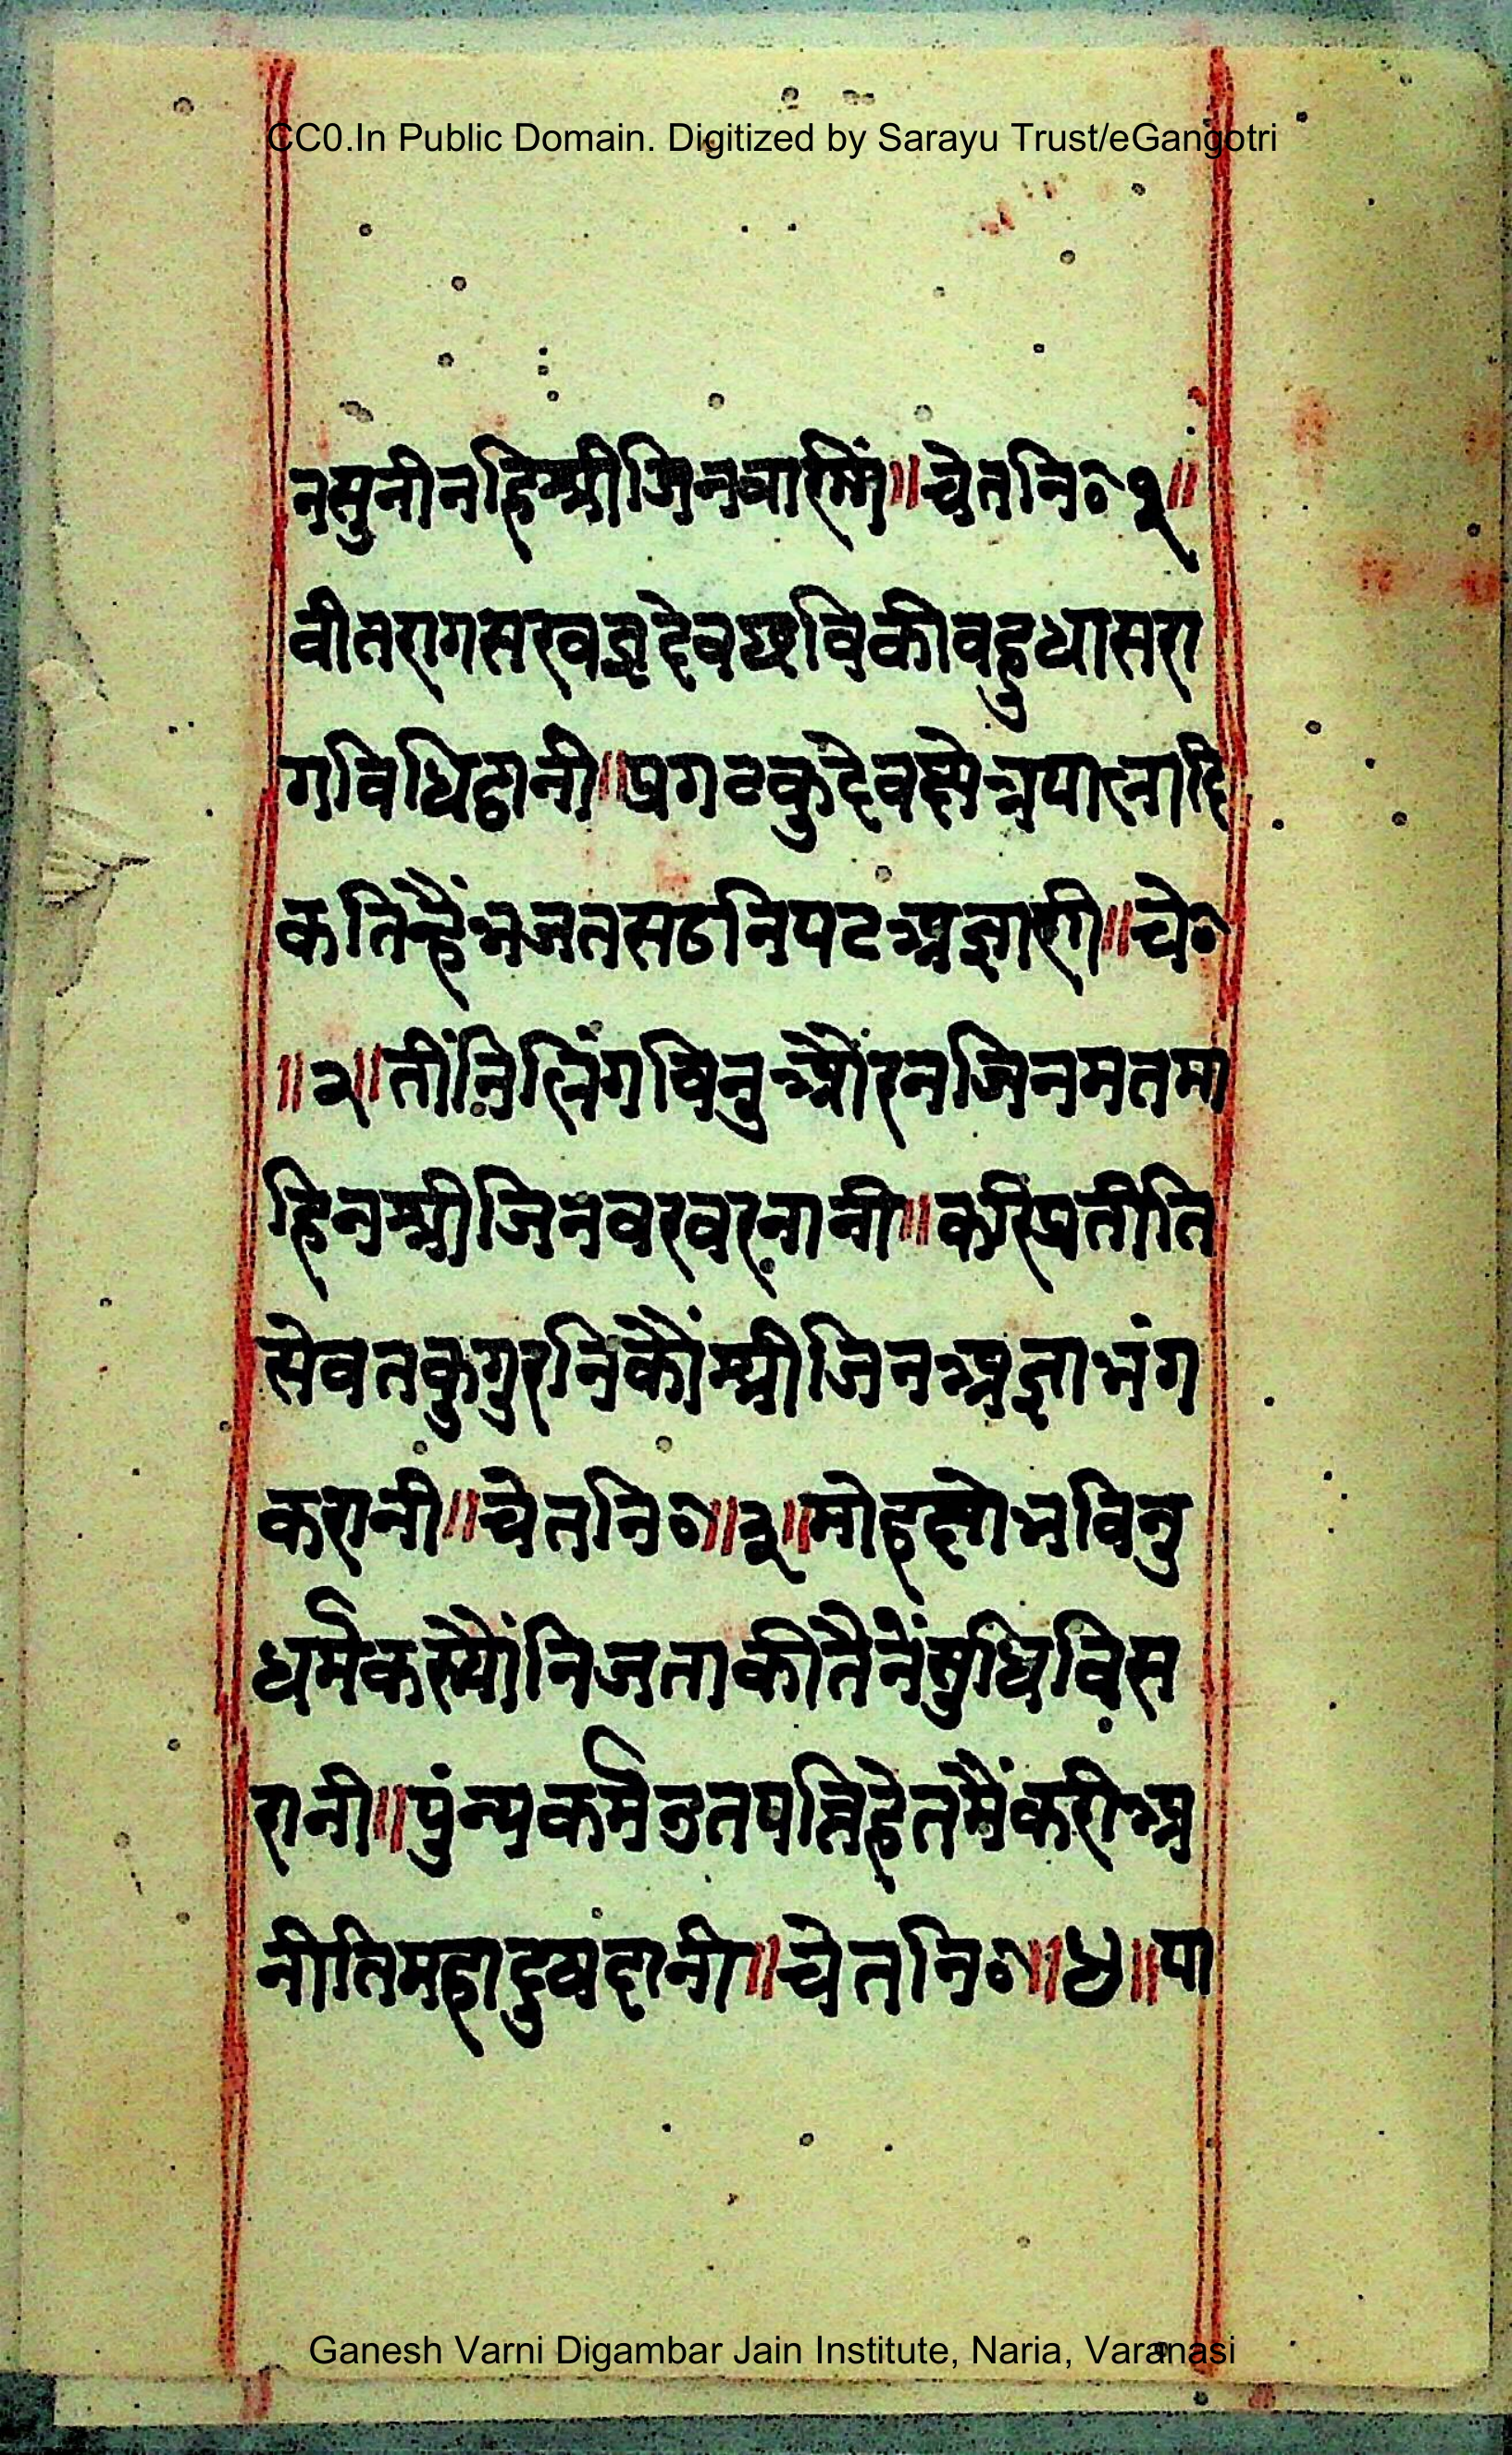 CC0.In Public Domain. Digitized by Sarayu Trust/eGangotri
न सुनी नहि श्रीजिनवानी ॥ चेतनि० १ ॥
वीतराग सरवज्ञ देव छवि की वहुधा सरा
ग विधि ठानी ॥ प्रगट कुदेव क्षेत्रपालादि
क तिन्हैं भजत सठ निपट अज्ञानी ॥ चे०
॥ २ ॥ तींनि लिंग विनु और न जिनमत मा
हि न श्रीजिनवर वरनानी ॥ करि प्रतीति
सेवत कुगुरनिकौं श्रीजिन अज्ञा भंग
करानी ॥ चेतनि० ॥ ३ ॥ मोह क्षोभ विनु
धर्म कह्यौ निज ताकी तैनें सुधि विस
रानी ॥ पुंन्य कर्म उतपत्ति हेतमैं करी अ
नीति महा दुखदानी ॥ चेतनि० ॥ ४ ॥ पा
Ganesh Varni Digambar Jain Institute, Naria, Varanasi